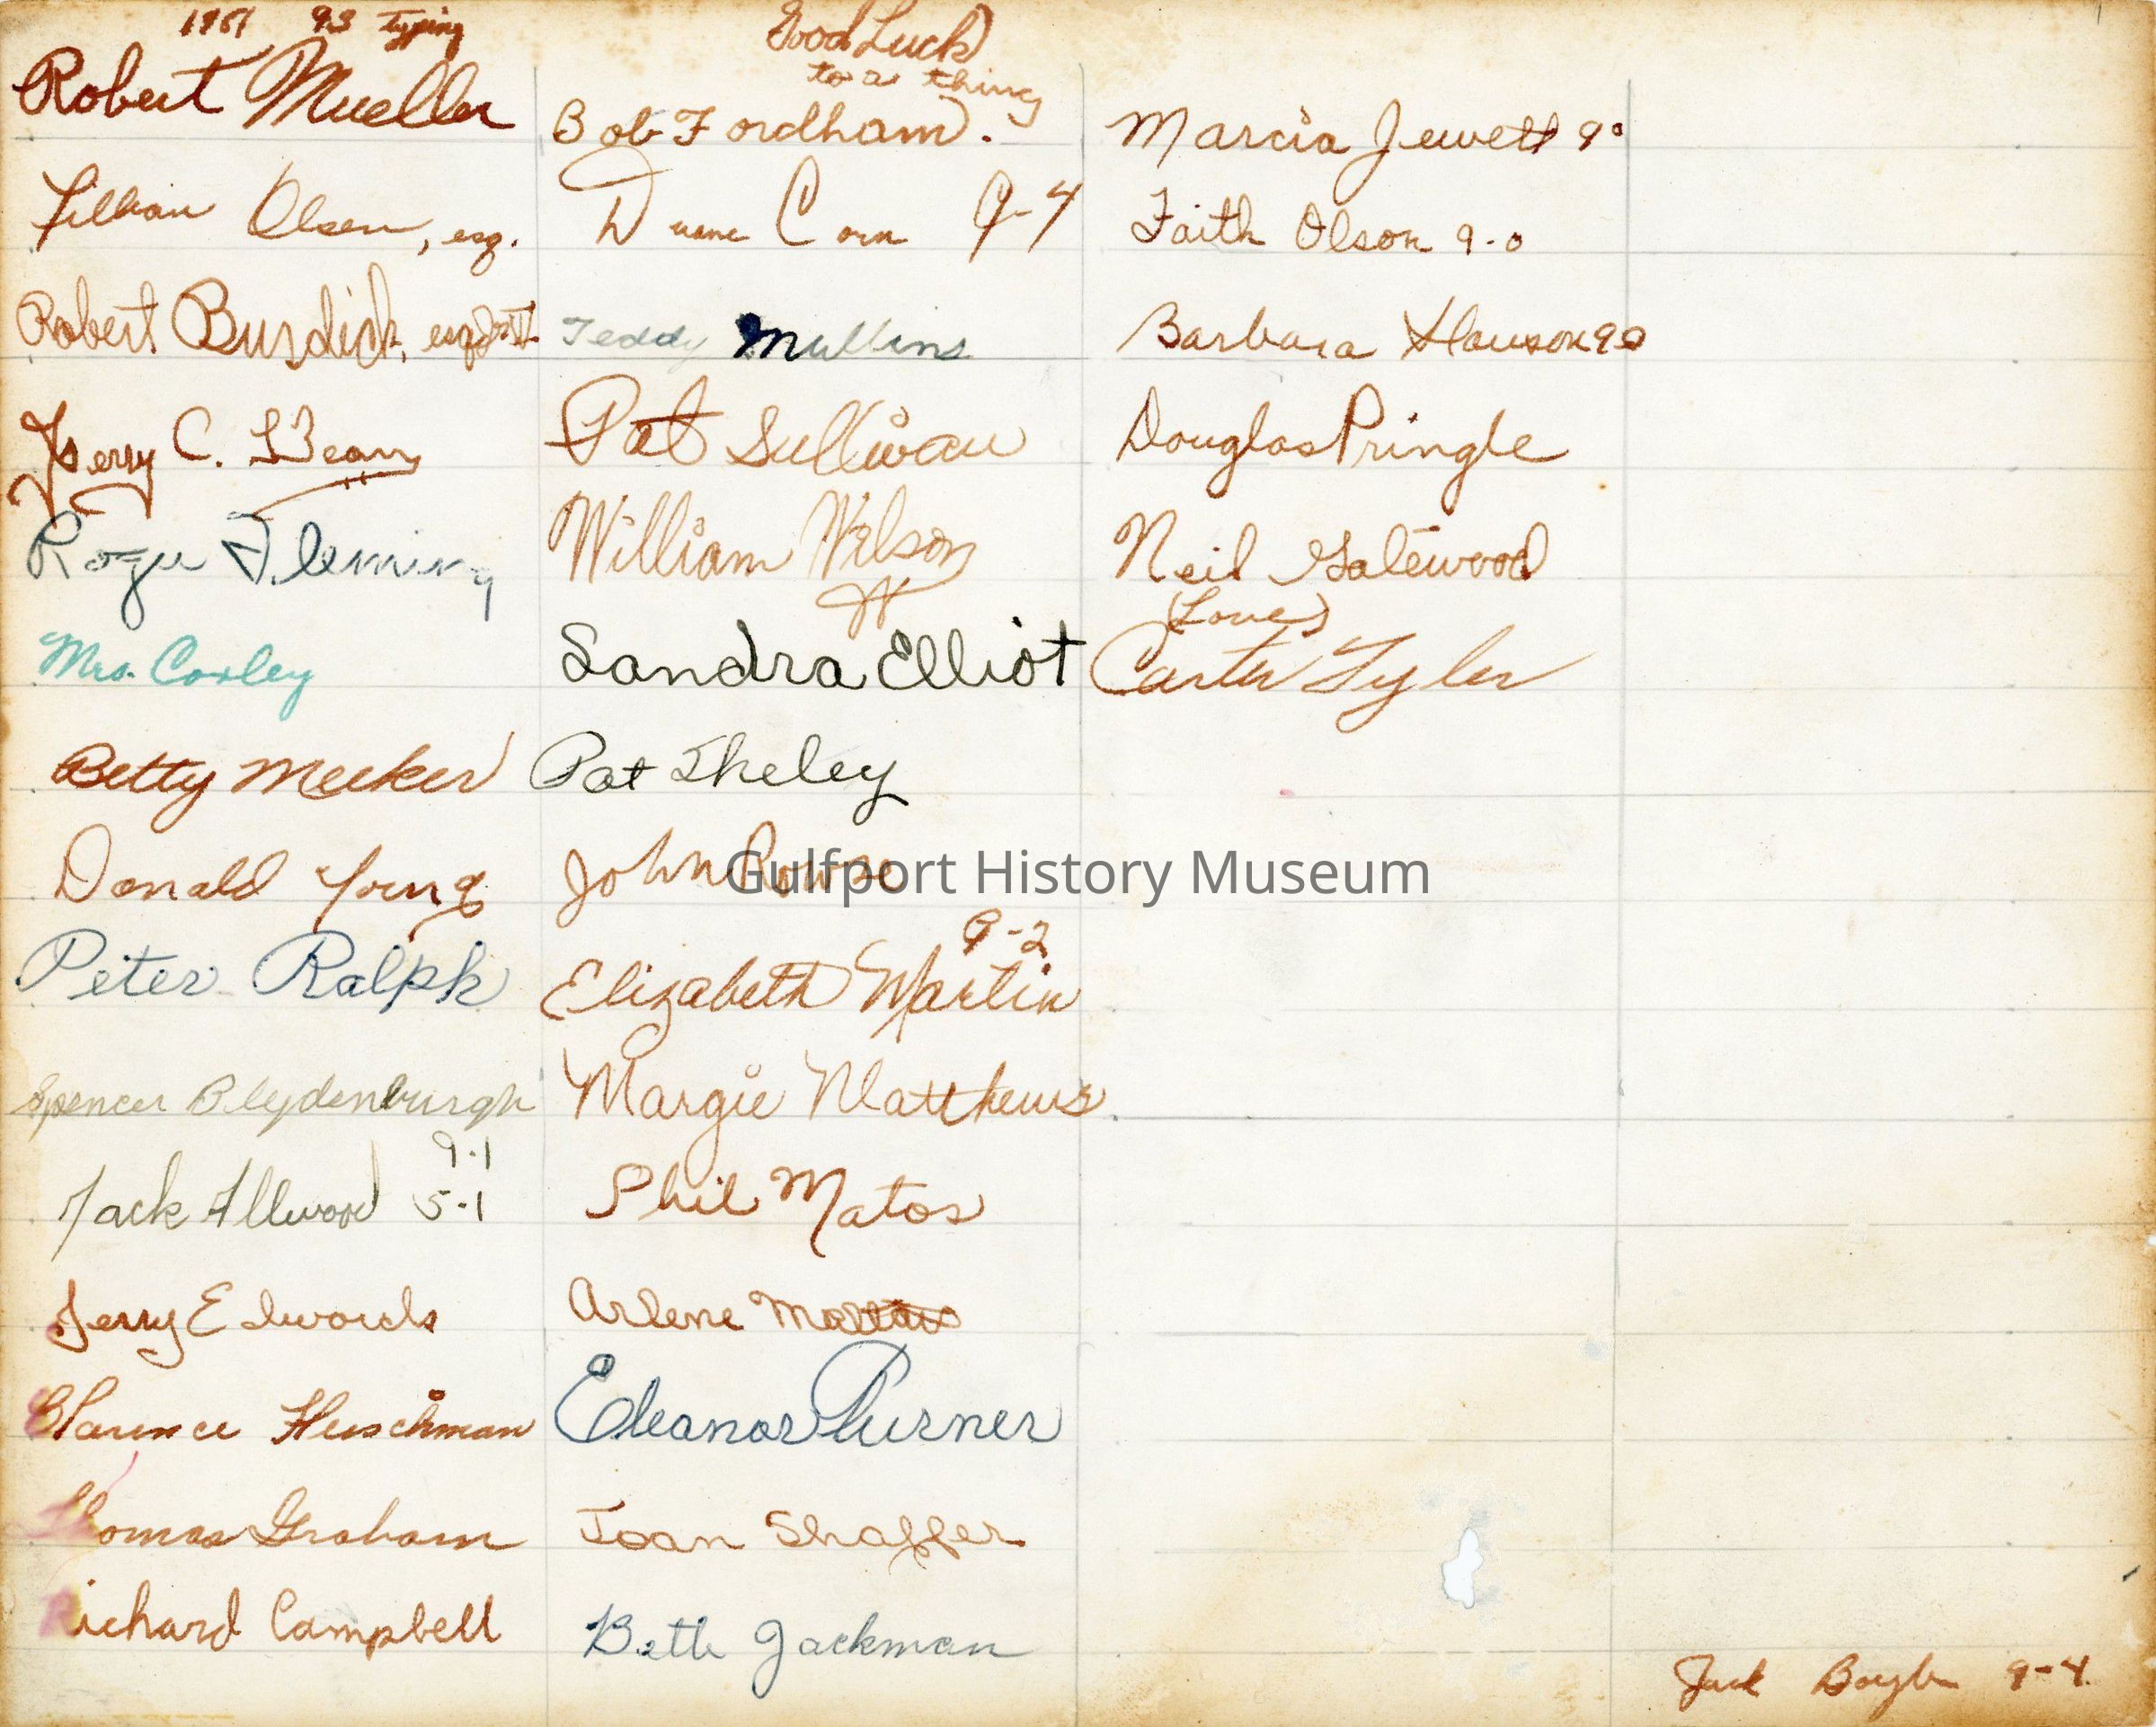 9-3 typing
Robert Mueller
Lillian Olsen, esq.
Robert Burdick, esq
Jerry C. Bean
Roger Fleming
Mrs. Corley
Betty Meeker
Donald Young
Peter Ralph
Spencer Blydenburgh
9-1
Jack Allwood 5-1
Jerry Edwards
Clarence Fleischman
Thomas Graham
Richard Campbell
Good Luck
to a thing
Bob Fordham.
Duane Corn 9-4
Teddy Mullins
Pat Sullivan
William Wilson
Sandra Elliot
Pat Sheley
John Rowse
9-2
Elizabeth Martin
Margie Matthews
Phil Matos
Arlene
Eleanor Purner
Joan Shaffer
Beth Jackman
Marcia Jewett 9
Faith Olson 9-0
Barbara Hawson 90
Douglas Pringle
Neil Gatewood
(Love)
Carter Tyler
Jack 9-4
Gulfport History Museum